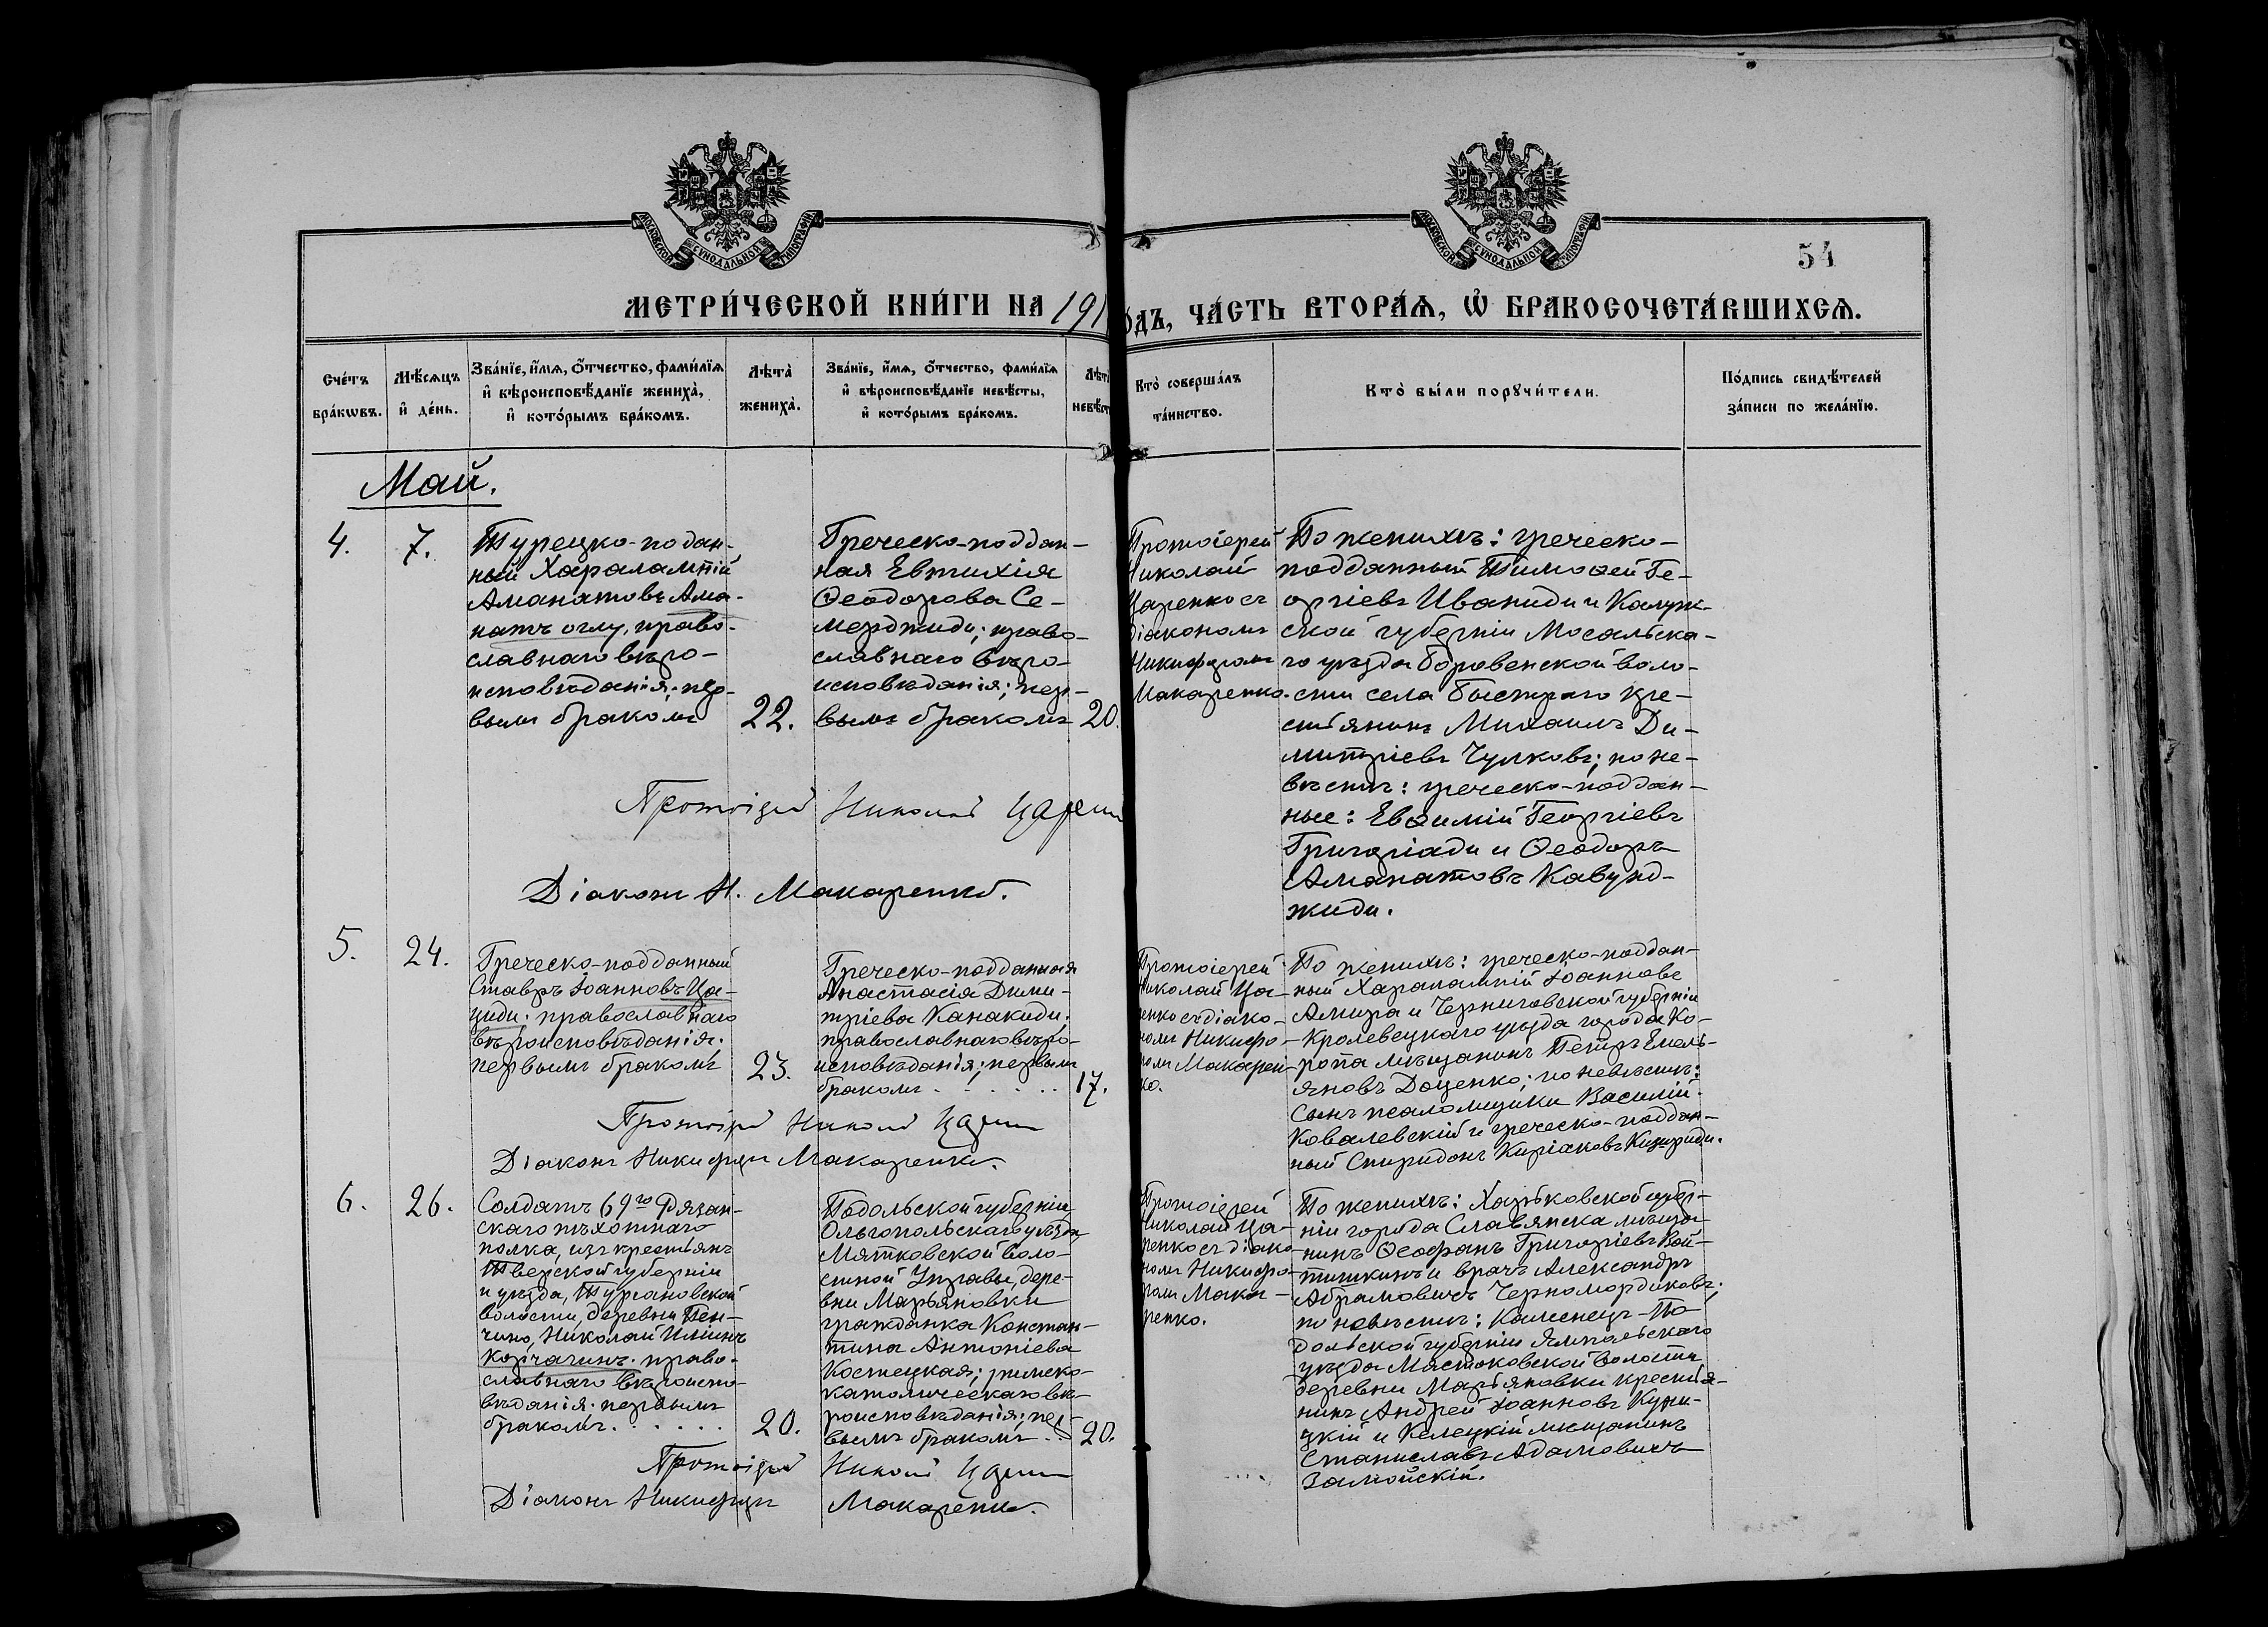 МОСКОВСКОЙ СѴНОДАЛЬНОЙ ТИПОГРАФІИ
МОСКОВСКОЙ СѴНОДАЛЬНОЙ ТИПОГРАФІИ
54
МЕТРИ́ЧЕСКОЙ КНИ́ГИ НА 191
ОДЪ, ЧА́СТЬ ВТОРА́Ѧ, Ѡ҆ БРАКОСОЧЕТА́ВШИХСѦ.
Сче́тъ бра́кѡвъ.
Мѣ́сѧцъ и҆ де́нь.
Зва́нїе, и҆́мѧ, ѻ҆́тчество, фами́лїѧ
и҆ вѣроисповѣ́данїе жениха̀,
и҆ кото́рымъ бра́комъ.
Лѣта̀ жениха̀.
Зва́нїе, и҆́мѧ, ѻ҆́тчество, фами́лїѧ
и҆ вѣроисповѣ́данїе невѣ́сты,
и҆ кото́рымъ бра́комъ.
Лѣта̀
невѣст
Кто̀ соверша́лъ
та́инство.
Кто̀ бы́ли порꙋчи́тели.
По́дпись свидѣ́телей
за́писи по жела́нїю.
Май.
4.
7.
Турецко-подан-
ный Харалампій
Аманатовъ Ама-
натъ оглу, право-
славнаго вѣро-
исповѣданія; пер-
вымъ бракомъ
22.
Греческо-поддан-
ная Евтихія
Ѳеодорова Се-
мерджиди; право-
славнаго вѣро-
исповѣданія; пер-
вымъ бракомъ
20.
Протоіерей
Николай
Царенко съ
діакономъ
Никифоромъ
Макаренко.
По женихѣ: греческо-
подданный Тимоѳей Ге-
оргіевъ Иваниди и Калуж-
ской губерніи Мосальска-
го уѣзда Боровенской воло-
сти села Быстраго кре-
стьянинъ Михаилъ Ди-
митріевъ Чулковъ; по не-
вѣстѣ: греческо-поддан-
ные: Евѳимій Георгіевъ
Григоріади и Ѳеодоръ
Аманатовъ Кавунд-
жиди.
Протоіерей Николай Царенк
Діаконъ Н. Макаренко.
5.
24.
Греческо-подданный
Ставръ Іоанновъ Ца-
циди; православнаго
вѣроисповѣданія;
первымъ бракомъ
23.
Греческо-подданная
Анастасія Дими-
тріева Канакиди;
православнаго вѣро-
исповѣданія; первымъ
бракомъ
17.
Протоіерей
Николай Ца-
ренко съ діако-
номъ Никифо-
ромъ Макарен-
ко.
По женихѣ: греческо-поддан-
ный Харалампій Іоанновъ
Амира и Черниговской губерніи
Кролевецкаго уѣзда города Ко-
ропа мѣщанинъ Петръ Емель-
яновъ Доценко; по невѣстѣ:
сынъ псаломщика Василій
Ковалевскій и греческо-поддан-
ный Спиридонъ Киріаковъ
Протоіерей Николай Царенко
Діаконъ Никифоръ Макаренко.
6.
26.
Солдатъ 69го Рязан-
скаго пѣхотнаго
полка, изъ крестьянъ
Тверской губерніи
и уѣзда, Тургановской
волости, деревни
Николай Ильинъ
Корчагинъ; право-
славнаго вѣроиспо-
вѣданія; первымъ
бракомъ
20.
Подольской губерніи
Ольгопольскаго уѣзда,
Мятковской воло-
стной Управы, дере-
вни Марьяновки
гражданка Констан-
тина Антоніева
Костецкая; римско-
католическаго вѣ-
роисповѣданія; пер-
вымъ бракомъ
20.
Протоіерей
Николай Ца-
ренко съ діако-
номъ Никифо-
ромъ Мака-
ренко.
По женихѣ: Харьковской губер-
ніи города Славянска мѣща-
нинъ Ѳеофанъ Григоріевъ Вой-
тишкинъ и врачъ Александръ
Абрамовичъ Черномордиковъ;
по невѣстѣ: Каменецъ-По-
дольской губерніи Ямпольскаго
уѣзда Мястковской волости
деревни Марьяновки крестья-
нинъ Андрей Іоанновъ Куни-
цкій и Келецкій мѣщанинъ
Станиславъ Адамовичъ
Замойскій.
Протоіерей Николай Царенко
Діаконъ Никифоръ Макаренко.